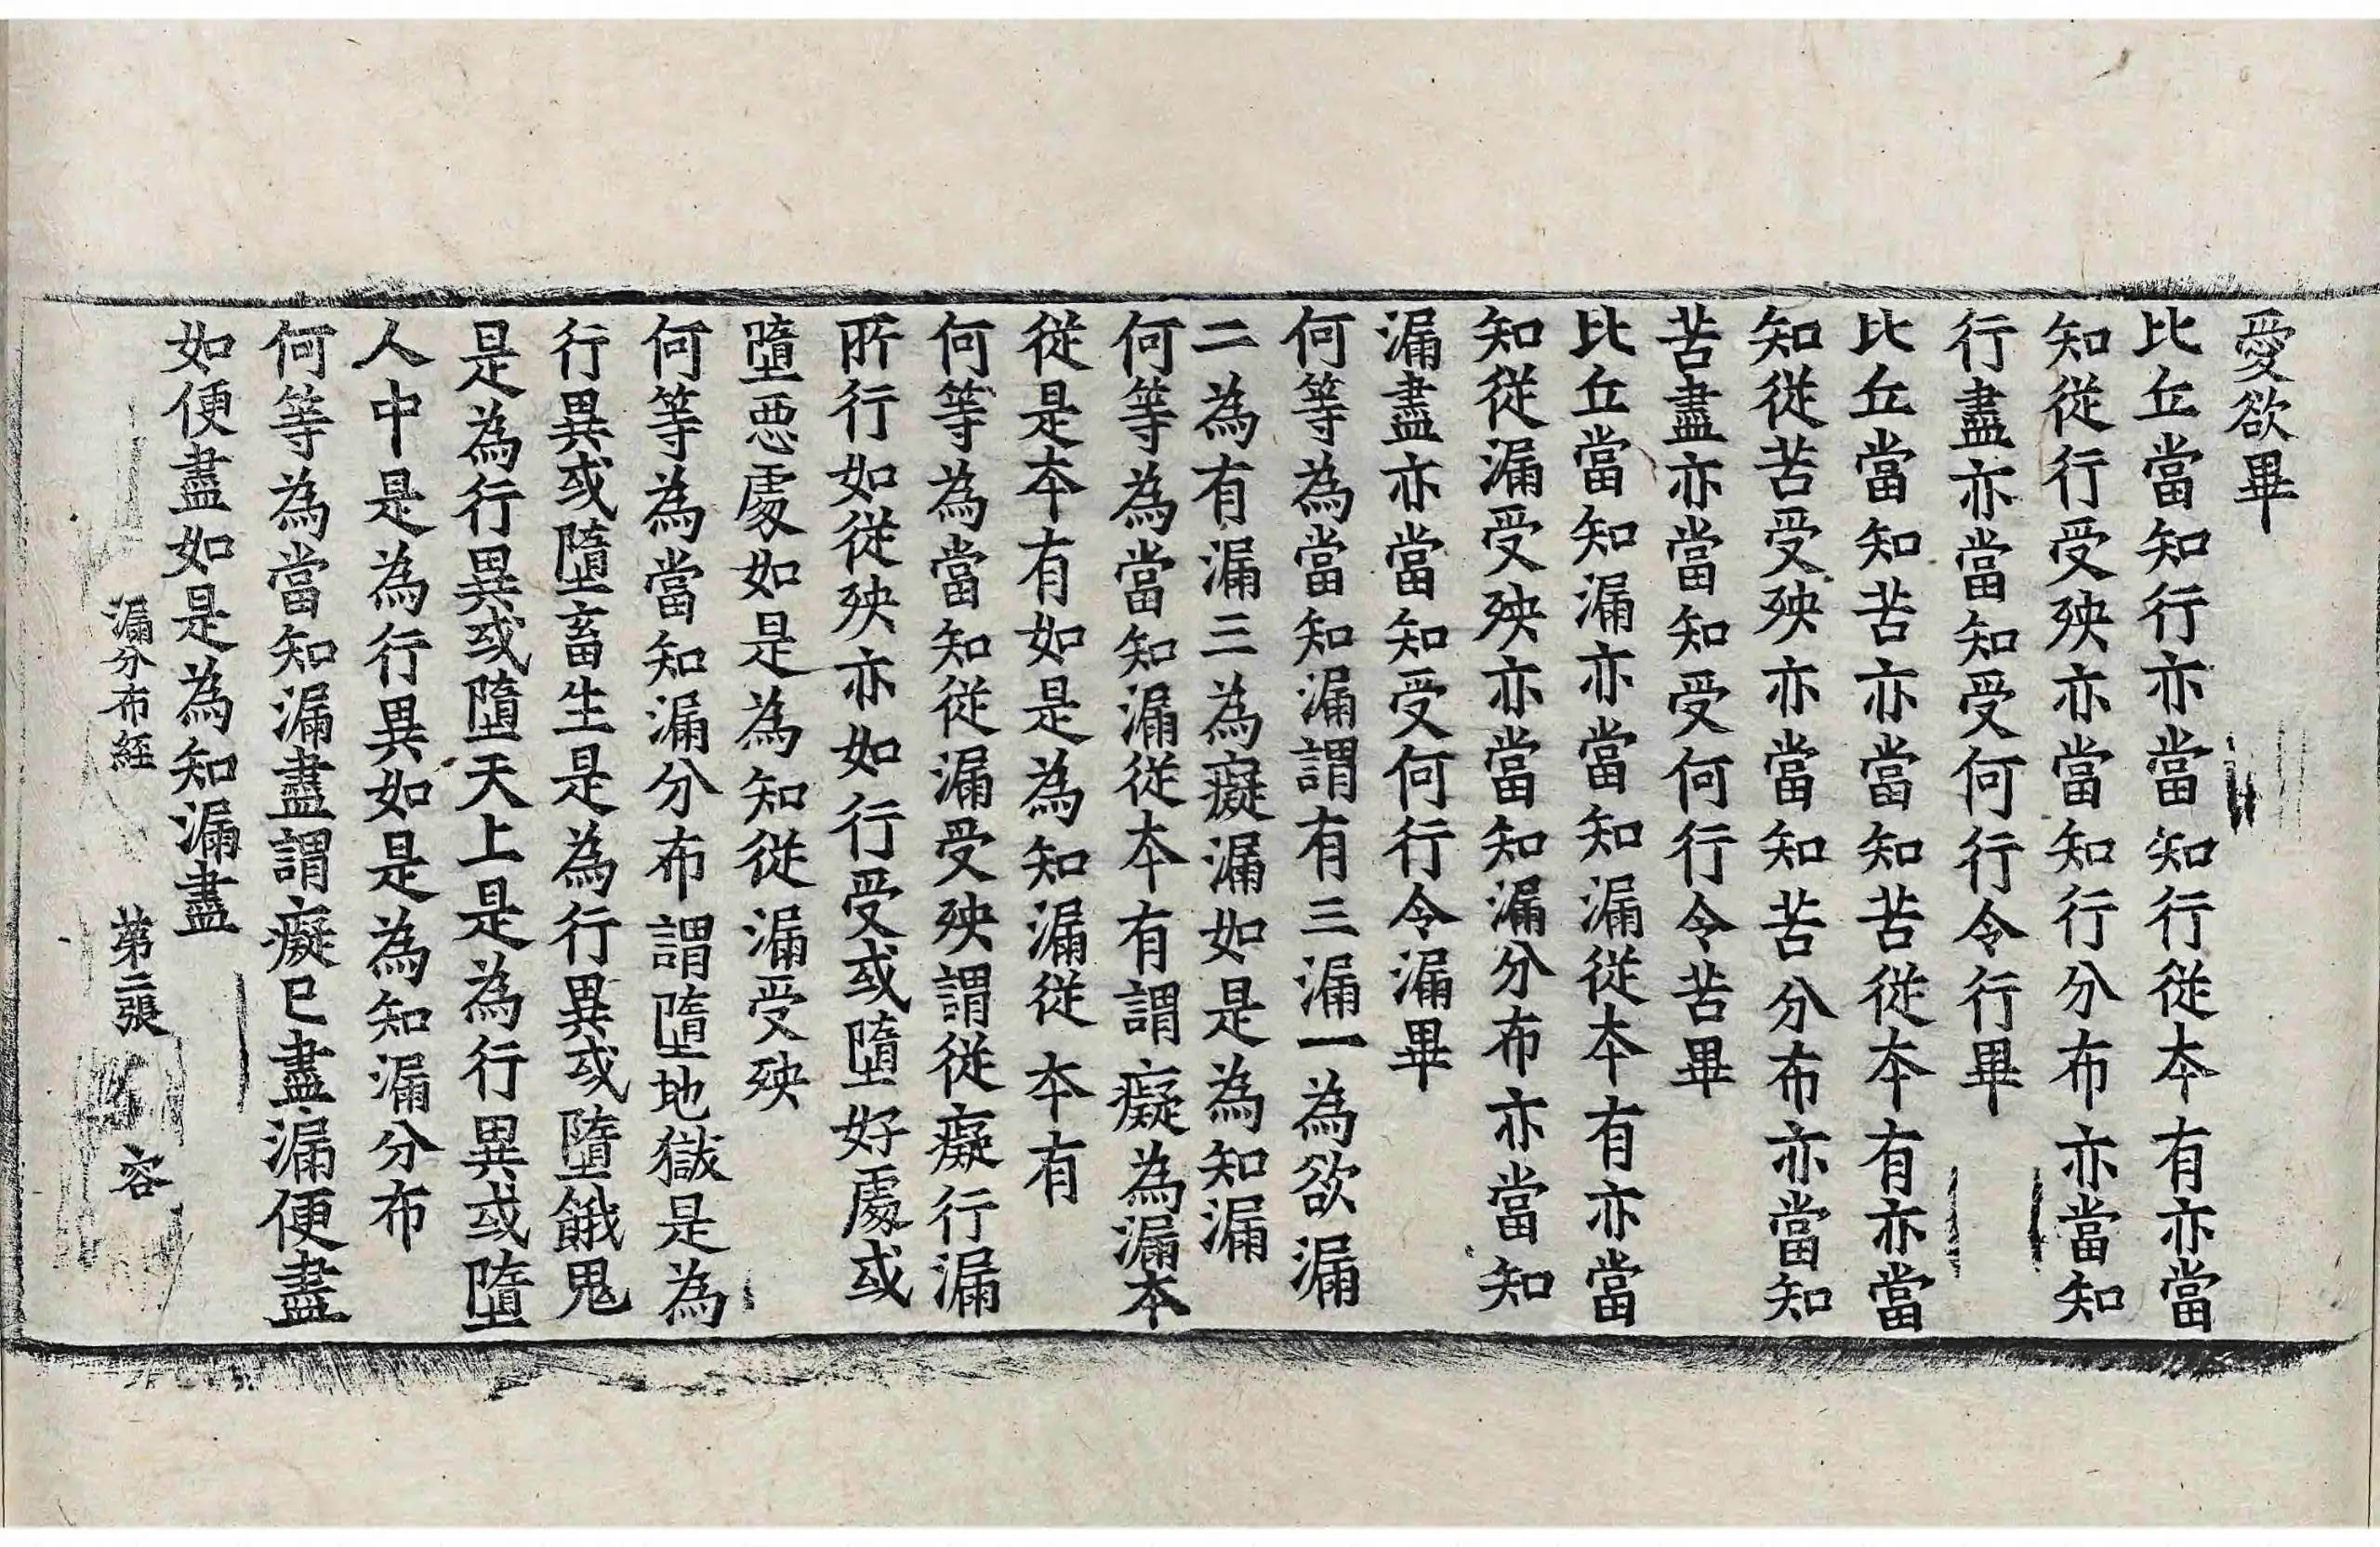 愛欲畢
比丘當知行亦當知行從本有亦當
知從行受殃亦當知行分布亦當知
行盡亦當知受何行令行畢
比丘當知苦亦當知苦從本有亦當
知從苦受殃亦當知苦分布亦當知
苦盡亦當知受何行令苦畢
比丘當知漏亦當知漏從本有亦當
知從漏受殃亦當知漏分布亦當知
漏盡亦當知受何行令漏畢
何等為當知漏謂有三漏一為欲漏
二為有漏三為癡漏如是為知漏
何等為當知漏從本有謂癡為漏本
從是本有如是為知漏從本有
何等為當知從漏受殃謂從癡行漏
所行如從殃亦如行受或墮好處或
墮惡處如是為知從漏受殃
何等為當知漏分布謂墮地獄是為
行異或墮畜生是為行異或墮餓鬼
是為行異或墮天上是為行異或墮
人中是為行異如是為知漏分布
何等為當知漏盡謂癡已盡漏便盡
如便盡如是為知漏盡
漏分布經 第二張 容